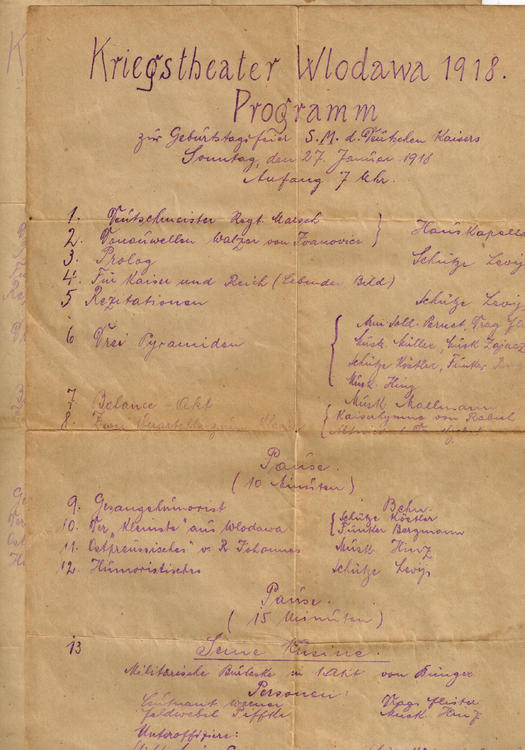 Kriegstheater Wlodawa 1918.
Programm
zur Geburtstagsfeier S.M. d. Deutschen Kaisers
Sonntag, den 27. Januar 1918
Anfang 7 Uhr.
1. Deutschmeister Regt. Marsch
2. Donauwellen Walzer von Ivanovici } Hauskapelle
3. Prolog Schütze Levijs
4. Für Kaiser und Reich (Lebender Bild)
5 Rezitationen Schütze Levijs
6 Drei Pyramiden
{ Arm. Sold. Pernet, Trag
Musk Müller, Musk Zajacz
Schütze Köstler, Funker
Musk. Hinz
7 Balance-Akt Musk Mallmann
8. Kaiserhymne von
Pause.
(10 Minuten)
9. Gesangshumorist Behn.
10. Der "Kleinste" aus Wlodawa { Schütze Köstler
Funker Bergmann
11. Ostpreussisches v. R. Johannes Musk Hinz
12. Humoristisches Schütze Levijs
Pause.
(15 Minuten)
13 Seine Kusine.
Militärische Burleske in 1 Akt von Bunge
Personen:
Leutnant Werner
Feldwebel Musk Hinz
Unteroffiziere: